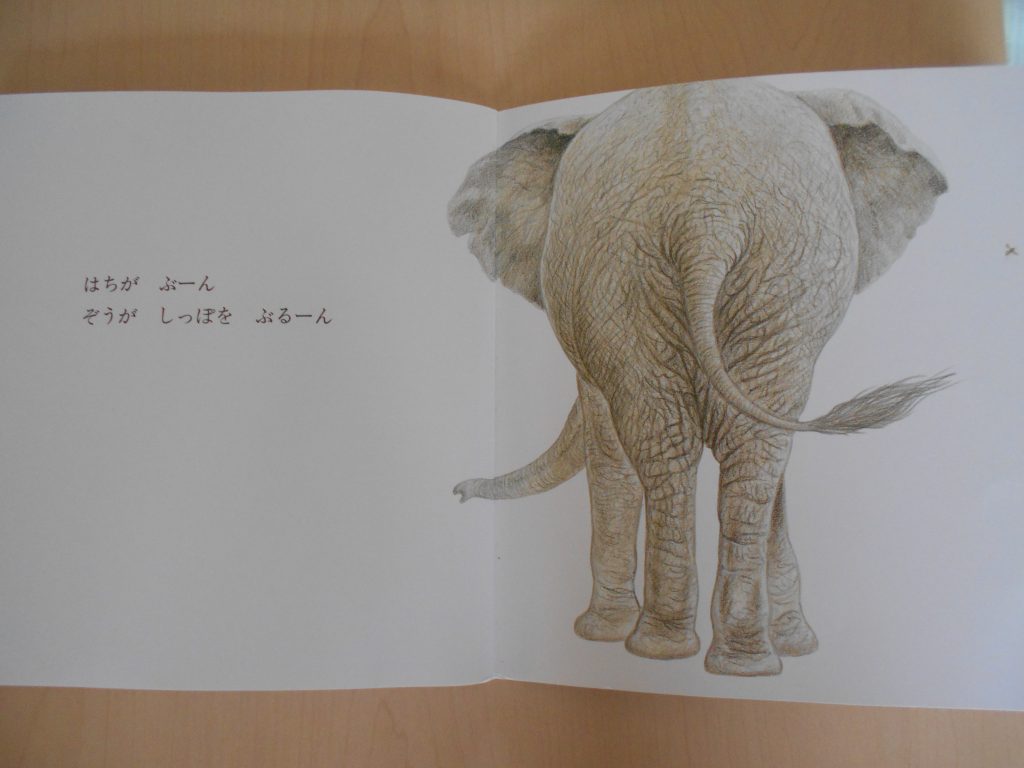 はちが　ぶーん
ぞうが　しっぽを　ぶるーん